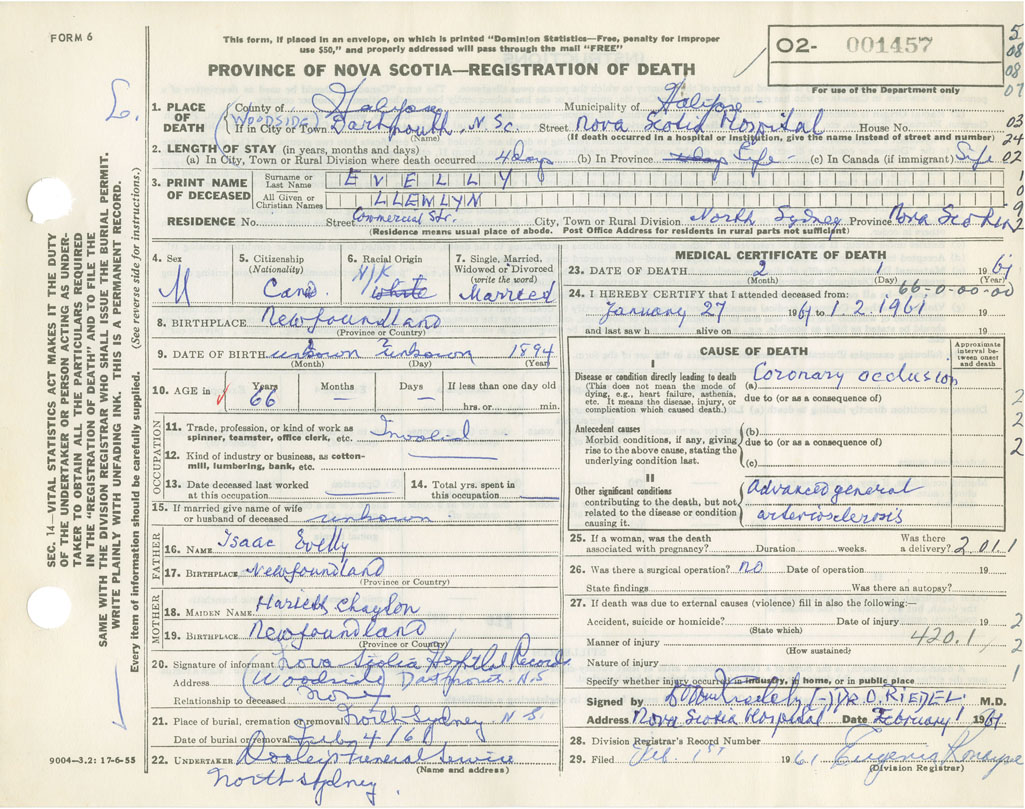 FORM 6
This form, if placed in an envelope, on which is printed "Dominion Statistics—Free, penalty for improper
use $50," and properly addressed will pass through the mail "FREE"
O2- 001457
PROVINCE OF NOVA SCOTIA—REGISTRATION OF DEATH
For use of the Department only
5
08
08
07
03
24
02
1. PLACE OF DEATH
County of Halifax Municipality of Halifax
(WOODSIDE)
If in City or Town Dartmouth, N. Sc. Street Nova Scotia Hospital House No.
(Name) (If death occurred in a hospital or institution, give the name instead of street and number)
2. LENGTH OF STAY (in years, months and days)
(a) In City, Town or Rural Division where death occurred 4 days (b) In Province Life - (c) In Canada (if immigrant) Life
3. PRINT NAME OF DECEASED
Surname or Last Name EVELLY
All Given or Christian Names LLEWLYN
RESIDENCE No. Street Commercial Str. City, Town or Rural Division North Sydney Province Nova Scotia
(Residence means usual place of abode. Post Office Address for residents in rural parts not sufficient)
4. Sex
M
5. Citizenship
(Nationality)
Cand
6. Racial Origin
N/K
White
7. Single, Married, Widowed or Divorced
(write the word)
Married
8. BIRTHPLACE Newfoundland
(Province or Country)
9. DATE OF BIRTH unkown unkown 1894
(Month) (Day) (Year)
10. AGE in Years 66 Months — Days — If less than one day old
hrs. or min.
OCCUPATION
11. Trade, profession, or kind of work as
spinner, teamster, office clerk, etc. Invalid
12. Kind of industry or business, as cotton-
mill, lumbering, bank, etc. —
13. Date deceased last worked
at this occupation —
14. Total yrs. spent in
this occupation —
15. If married give name of wife
or husband of deceased unkown
FATHER
16. NAME Isaac Evelly
17. BIRTHPLACE Newfoundland
(Province or Country)
MOTHER
18. MAIDEN NAME Hariett
19. BIRTHPLACE Newfoundland
(Province or Country)
20. Signature of informant Nova Scotia Hospital Records
Address (Woodside Dartmouth N.S
Relationship to deceased none
21. Place of burial, cremation or removal North Sydney N S
Date of burial or removal Feb 4/61
22. UNDERTAKER Dooley's Funeral Service
(Name and address)
North Sydney
9004—3.2: 17-6-55
MEDICAL CERTIFICATE OF DEATH
23. DATE OF DEATH 2 1 1961
(Month) (Day) (Year)
66-0-00-00
24. I HEREBY CERTIFY that I attended deceased from:
January 27 1961 to 1.2.1961
and last saw h alive on 19
CAUSE OF DEATH
Approximate interval between onset and death
I
Disease or condition directly leading to death
(This does not mean the mode of
dying, e.g., heart failure, asthenia,
etc. It means the disease, injury, or
complication which caused death.)
(a) Coronary occlusion
due to (or as a consequence of)
Antecedent causes
Morbid conditions, if any, giving
rise to the above cause, stating the
underlying condition last.
(b)
due to (or as a consequence of)
(c)
II
Other significant conditions
contributing to the death, but not
related to the disease or condition
causing it.
Advanced general
arteriosclerosis
25. If a woman, was the death
associated with pregnancy? Duration weeks. Was there
a delivery? 2.01.1
26. Was there a surgical operation? no Date of operation 19
State findings Was there an autopsy?
27. If death was due to external causes (violence) fill in also the following:—
Accident, suicide or homicide? Date of injury 19
(State which)
Manner of injury 420.1
(How sustained)
Nature of injury
Specify whether injury occurred in industry, in home, or in public place
Signed by DR. O. RIEDEL M.D.
Address Nova Scotia Hospital Date February 1 1961
28. Division Registrar's Record Number
29. Filed Feb. 1st 1961 Eugenia
(Division Registrar)
SEC. 14—VITAL STATISTICS ACT MAKES IT THE DUTY
OF THE UNDERTAKER OR PERSON ACTING AS UNDER-
TAKER TO OBTAIN ALL THE PARTICULARS REQUIRED
IN THE "REGISTRATION OF DEATH" AND TO FILE THE
SAME WITH THE DIVISION REGISTRAR WHO SHALL ISSUE THE BURIAL PERMIT.
WRITE PLAINLY WITH UNFADING INK. THIS IS A PERMANENT RECORD.
Every item of information should be carefully supplied. (See reverse side for instructions.)